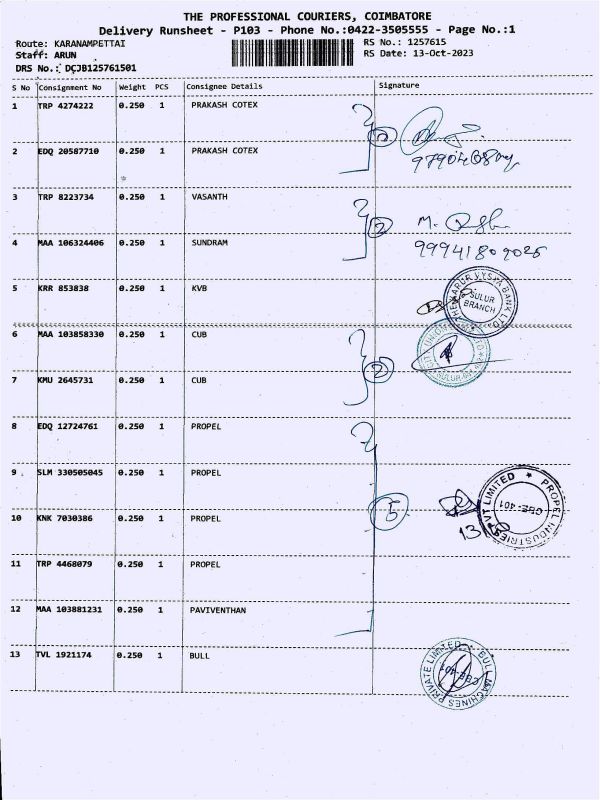 THE PROFESSIONAL COURIERS, COIMBATORE
Delivery Runsheet - P103 - Phone No.:0422-3505555 - Page No.:1
Route: KARANAMPETTAI RS No.: 1257615
Staff: ARUN RS Date: 13-Oct-2023
DRS No.: DCJB125761501
S No Consignment No Weight PCS Consignee Details Signature
1 TRP 4274222 0.250 1 PRAKASH COTEX
2 EDQ 20587710 0.250 1 PRAKASH COTEX
3 TRP 8223734 0.250 1 VASANTH
M.
4 MAA 106324406 0.250 1 SUNDRAM
5 KRR 853838 0.250 1 KVB
THE KARUR VYSYA BANK LTD
SULUR
BRANCH
6 MAA 103858330 0.250 1 CUB
CITY UNION
SULUR
7 KMU 2645731 0.250 1 CUB
2
8 EDQ 12724761 0.250 1 PROPEL
9 SLM 330505045 0.250 1 PROPEL
10 KNK 7030386 0.250 1 PROPEL
5
PROPEL INDUSTRIES PVT LIMITED
CBE-401
11 TRP 4468079 0.250 1 PROPEL
12 MAA 103881231 0.250 1 PAVIVENTHAN
13 TVL 1921174 0.250 1 BULL
BULL MACHINES PRIVATE LIMITED